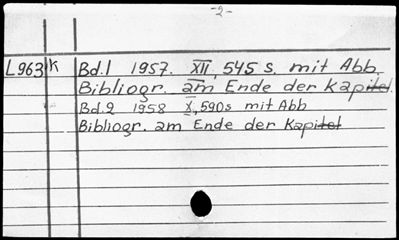 -2-
L963 K Bd.1 1957. XII, 545 s. mit Abb.
Bibliogr. am Ende der Kapitel.
Bd.2 1958 X, 590s mit Abb
Bibliogr. am Ende der Kapitel